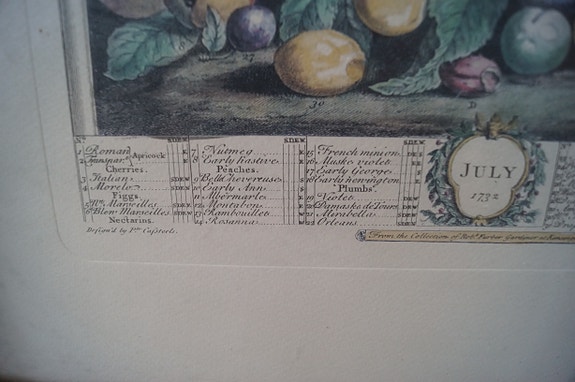 27
30
D
No. SDEW
1 Roman
2 Transpart. Apricock E
Cherries.
3 Italian SDEW
4 Morelo SDEW
Figgs.
5 Wte. Marseilles SDEW
6 Blew Marseilles SDEW
Nectarins.
SDEW
7 Nutmeg E
8 Early hastive E
Peaches.
9 Bell cheverruse
10 Early Ann S
11 Albermarle
12 Montabon
13 Rambouillet
14 Rosanna
SDEW
15 French minion DE
16 Muske violet E
17 Early George
18 Early newington
Plumbs.
19 Violet DEW
20 Damaske de Tours DEW
21 Mirabella
22 Orleans
JULY
1732
Design'd by Ptr. Casteels.
From the Collection of Robt. Furber Gardiner at Kensin